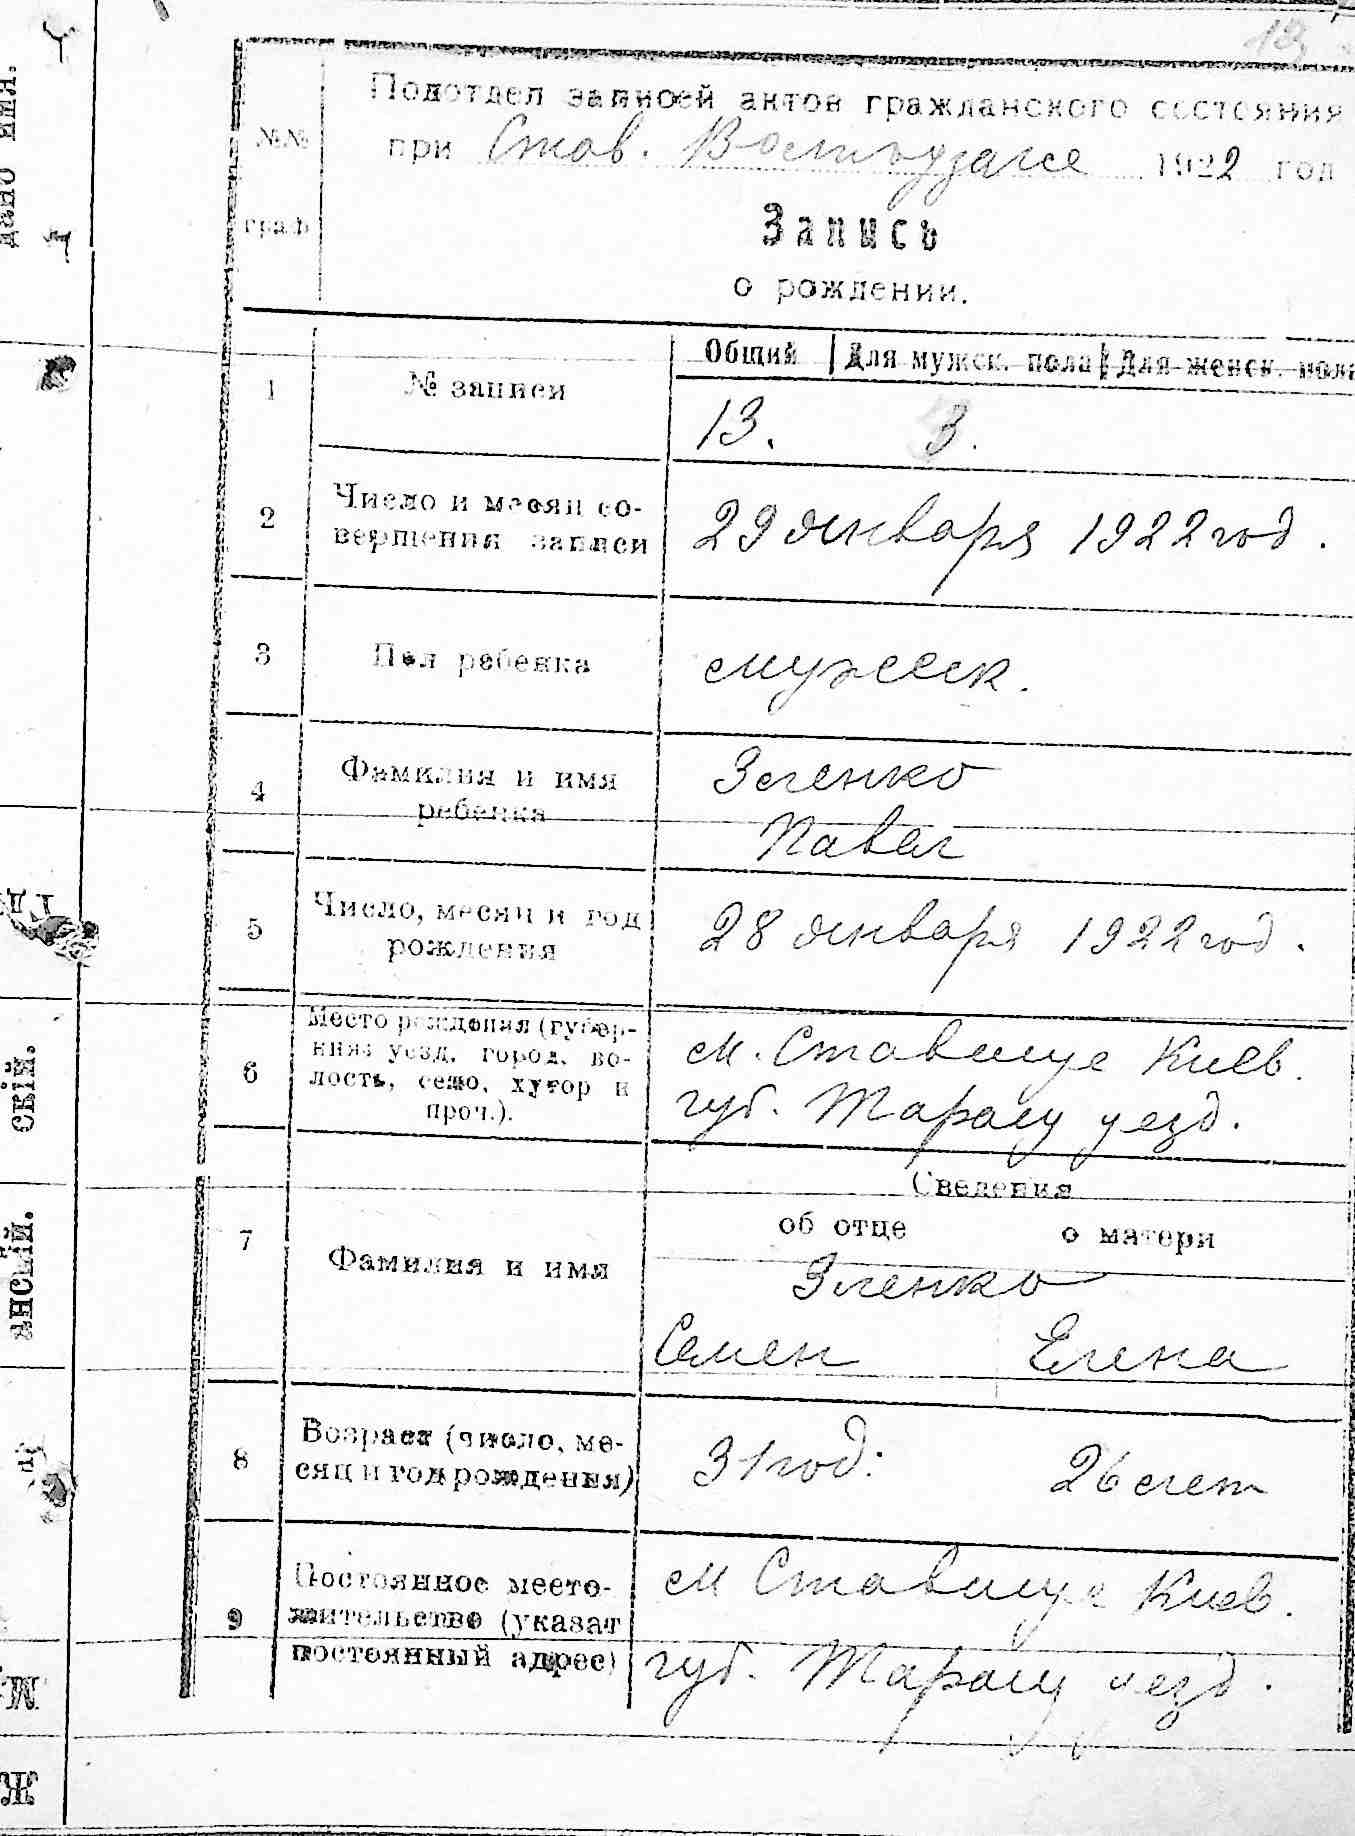 13
дано имя.
Подотдел записей актов гражданского состояния
№№
при Став. 1922 год
граф
Запись
о рождении.
Общий Для мужск. пола Для женск. пола
1 № записи
13. 3.
2 Число и месяц со-
вершения записи
29 января 1922 год.
3 Пол ребенка
мужеск.
4 Фамилия и имя
ребенка
Зленко
Павел
5 Число, месяц и год
рождения
28 января 1922 год.
6 Место рождения (губер-
ния, уезд, город, во-
лость, село, хутор и
проч.).
м. Ставище Киев.
губ. Таращ уезд.
скій.
Сведения
об отце о матери
7 Фамилия и имя
Зленко
Семен Елена
анскій.
8 Возраст (число, ме-
сяц и год рождения)
31 год: 26 лет
9 Постоянное место-
жительство (указат
постоянный адрес)
м Ставище Киев.
губ. Таращ уезд.
М.
Ж